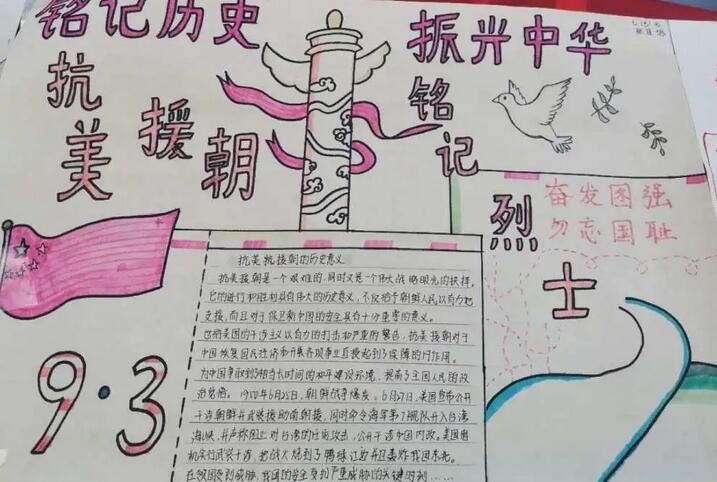 铭记历史
振兴中华
抗美
援朝
铭记
烈士
奋发图强
勿忘国耻
9·3
抗美抗援朝的历史意义
抗美援朝是一个艰难的,同时又是一个伟大战略眼光的抉择,
它的进行和胜利具有伟大的历史意义,不仅给予朝鲜人民以有力的
支援,而且对于保卫新中国的安全具有十分重要的意义。
也把美国的干涉主义以有力的打击和严重的警告,抗美援朝对于
中国恢复国民经济和开展各项事业直接起到了保障的作用。
为中国争取到了相当长时间的和平建设环境,提高了全国人民的政
治觉悟。1950年6月25日,朝鲜战争爆发。6月27日,美国宣布公开
干涉朝鲜并武装援助南朝鲜,同时命令海军第7舰队开入台湾
海峡,并声称阻止对台湾的任何攻击,公开干涉中国内政。美国出
机实行武装干涉,把战火烧到了鸭绿江边并且轰炸我国东北。
在领国受到威胁,我国的安全受到严重威胁的关键时刻……